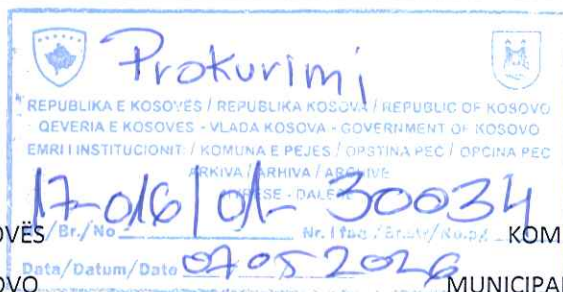 Prokurimi
REPUBLIKA E KOSOVËS / REPUBLIKA KOSOVA / REPUBLIC OF KOSOVO
QEVERIA E KOSOVËS - VLADA KOSOVA - GOVERNMENT OF KOSOVO
EMRI I INSTITUCIONIT: / KOMUNA E PEJËS / OPŠTINA PEĆ / OPĆINA PEĆ
ARKIVA / ARHIVA / ARCHIVE
DALËSE
17-016/01-30034
OVËS /Br./No. KOM
Data/Datum/Date 07 05 2026
OVO MUNICIPAL